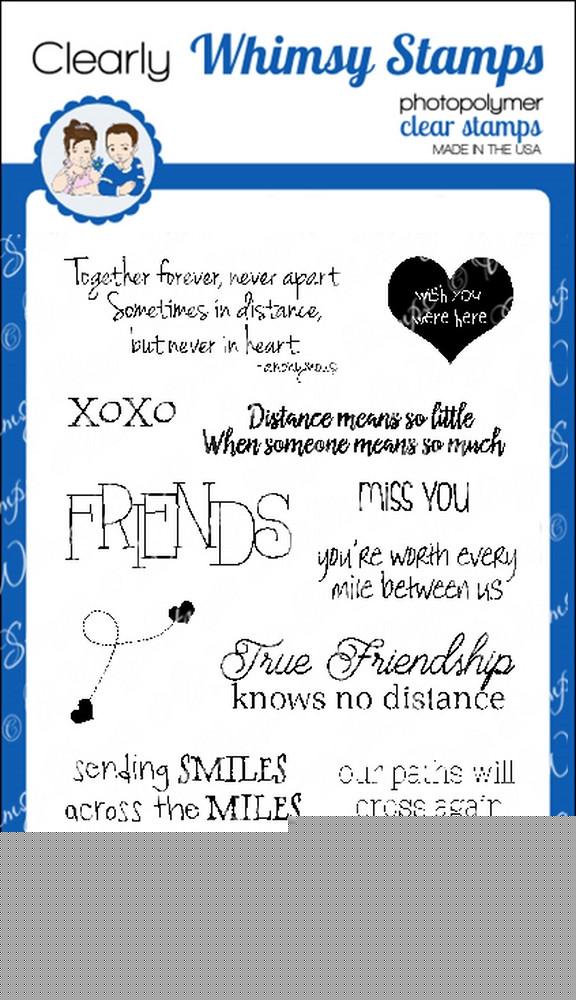 Clearly Whimsy Stamps
photopolymer
clear stamps
MADE IN THE USA
Together forever, never apart
Sometimes in distance,
but never in heart.
-anonymous
wish you
were here
XOXO
Distance means so little
When someone means so much
FRIENDS
miss you
you're worth every
mile between us
True Friendship
knows no distance
sending SMILES
across the MILES
our paths will
cross again